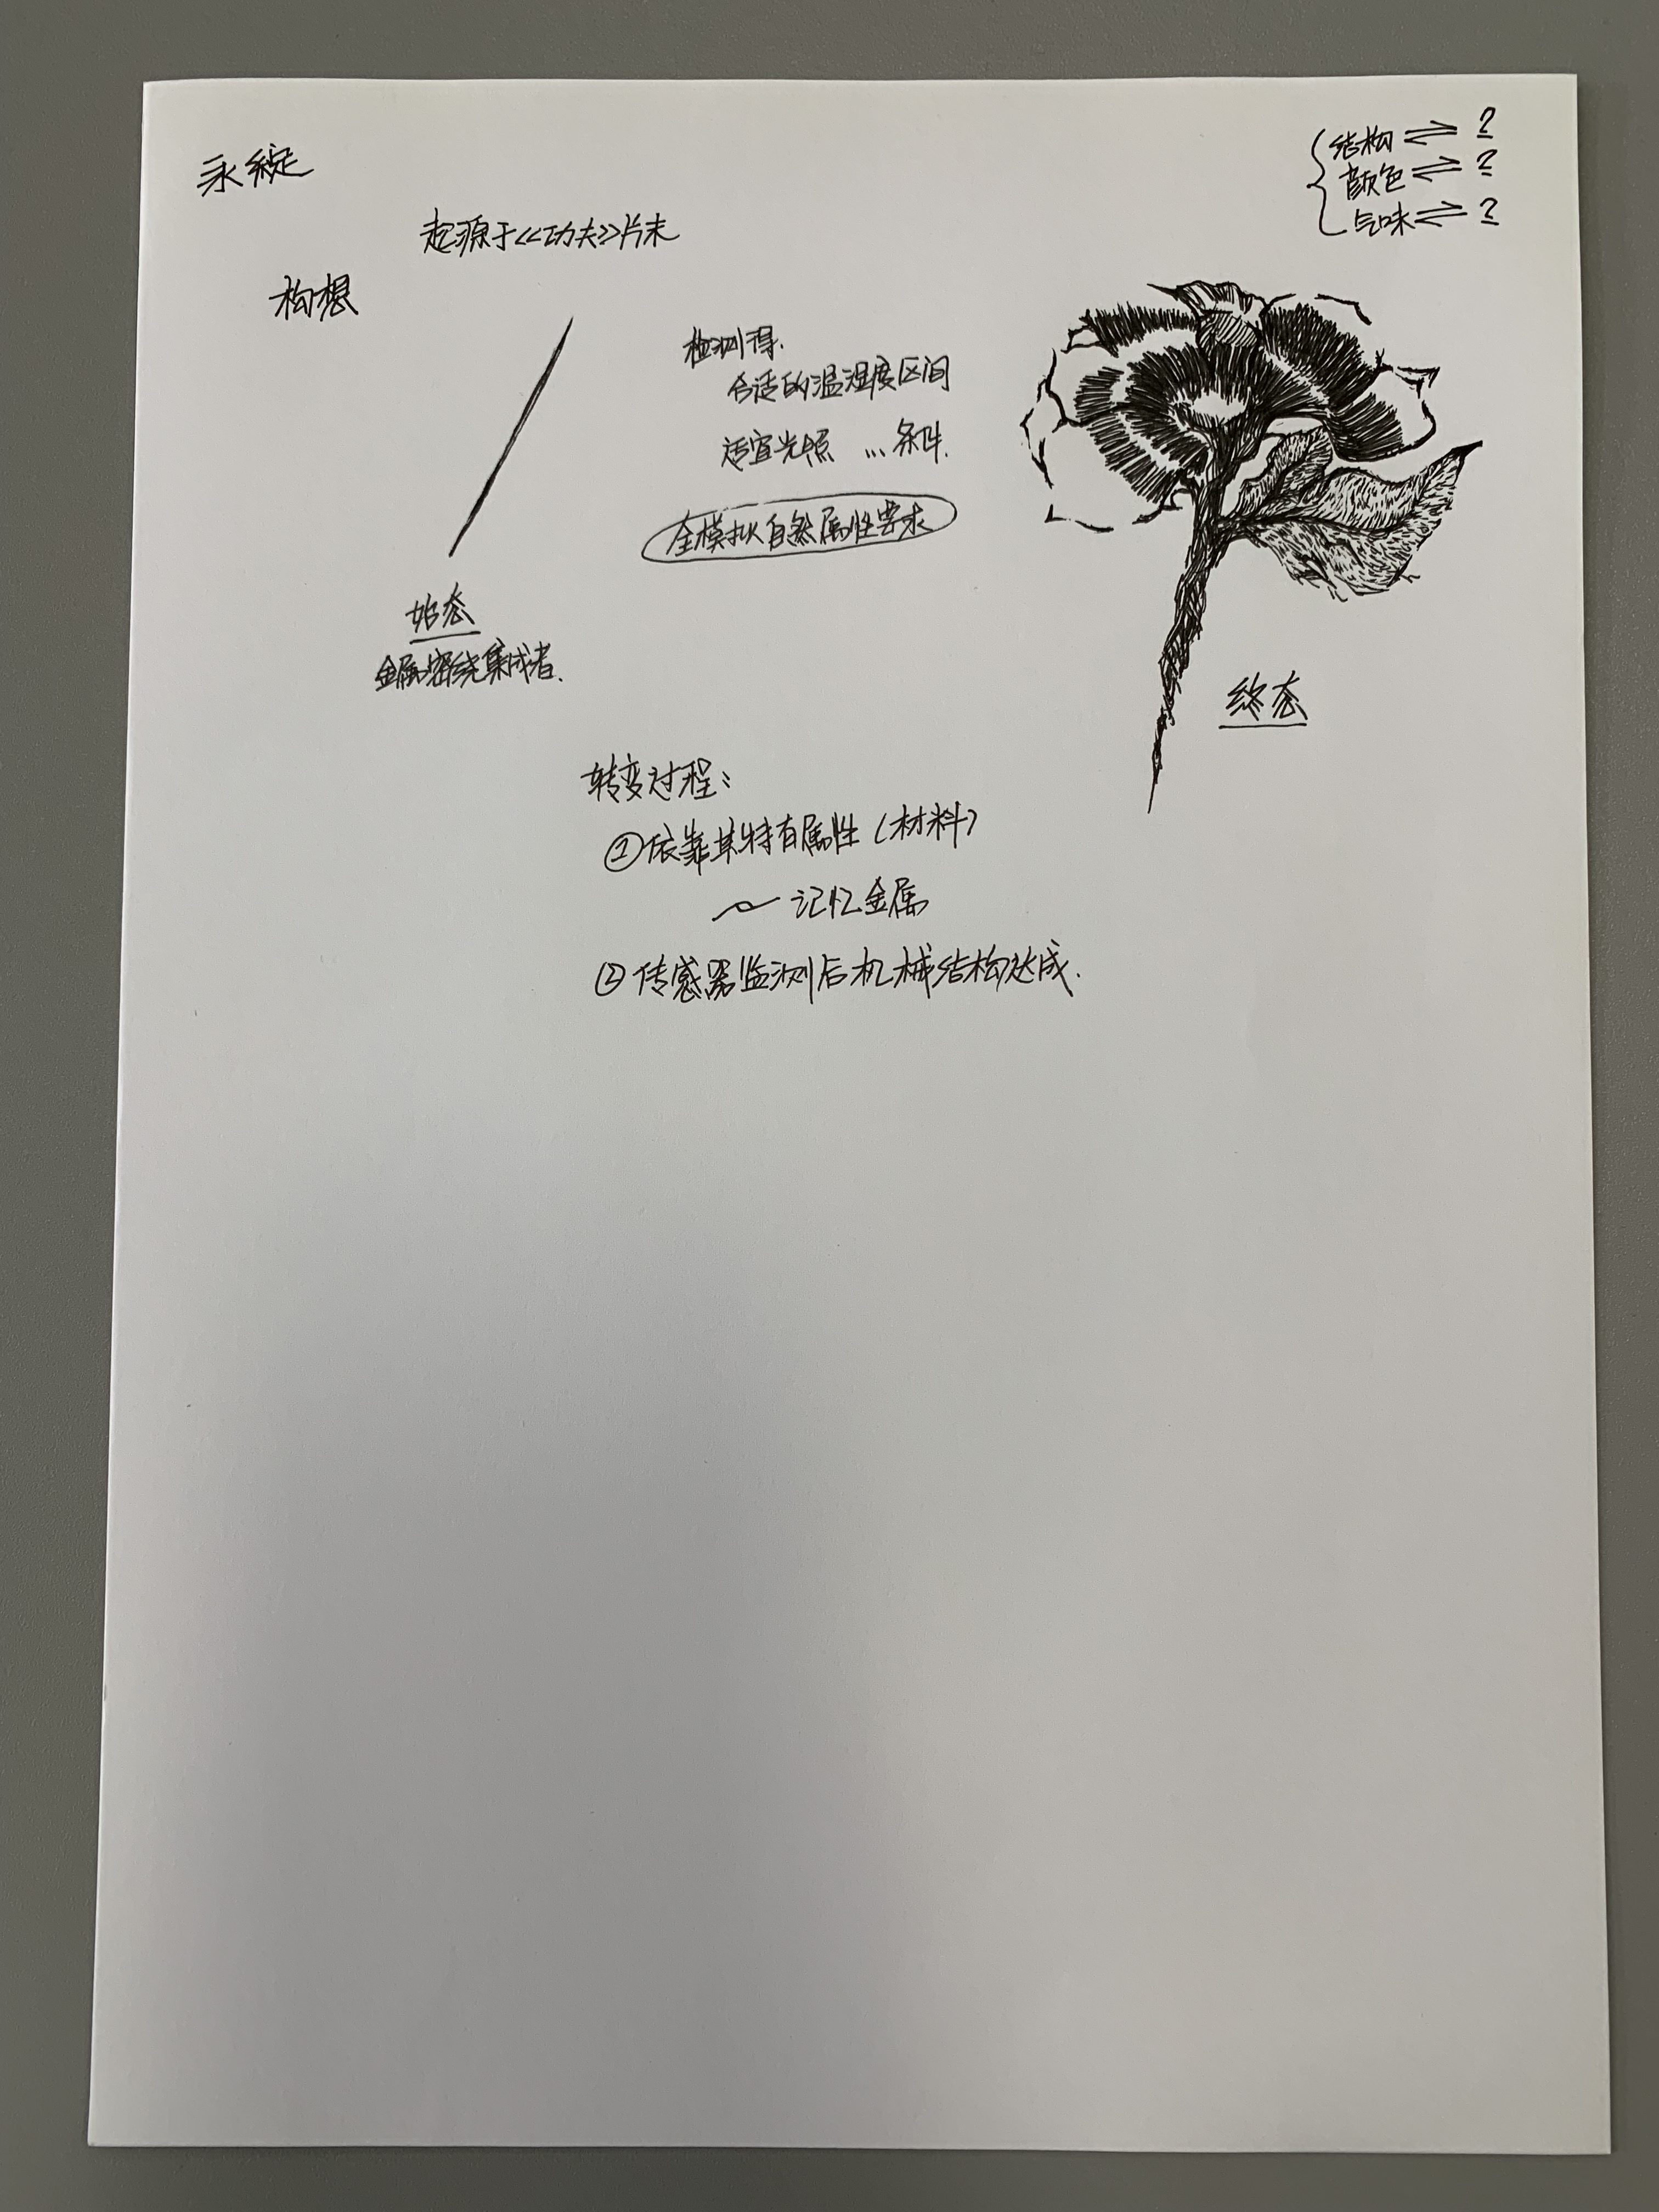 永绽
结构⇌?
颜色⇌?
气味⇌?
起源于<<功夫>>片末
构想
检测得.
合适的温湿度区间
适宜光照 …条件.
全模拟自然属性要求
始态
金属密绕集成者.
终态
转变过程:
①依靠其特有属性(材料)
~记忆金属
②传感器监测后机械结构达成.